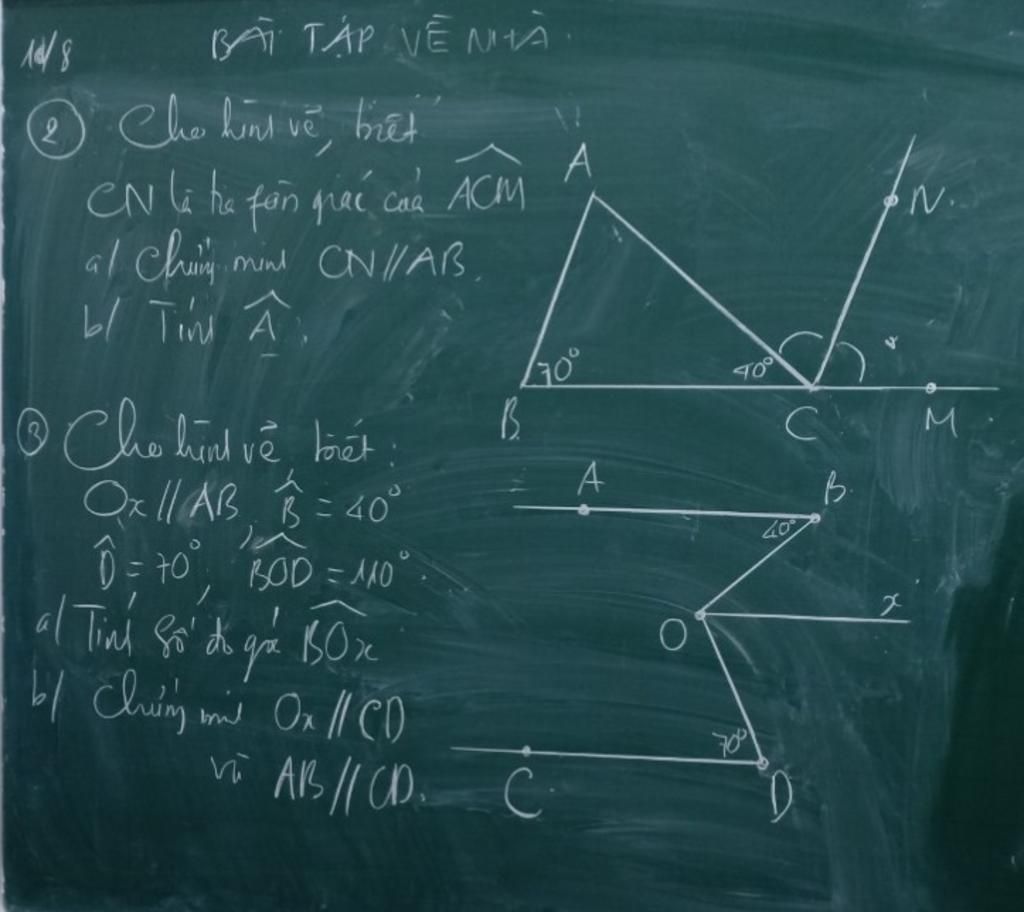 14/8
BÀI TẬP VỀ NHÀ.
② Cho hình vẽ, biết
CN là tia fân giác của ACM
a/ Chứng minh CN//AB.
b/ Tính Â.
A
N.
70°
40°
B
C
M
③ Cho hình vẽ biết:
Ox // AB, B̂ = 40°
D̂ = 70°, BOD = 110°.
a/ Tính số đo góc BOx
b/ Chứng minh Ox // CD
và AB // CD.
A
B.
40°
O
x
70°
C
D